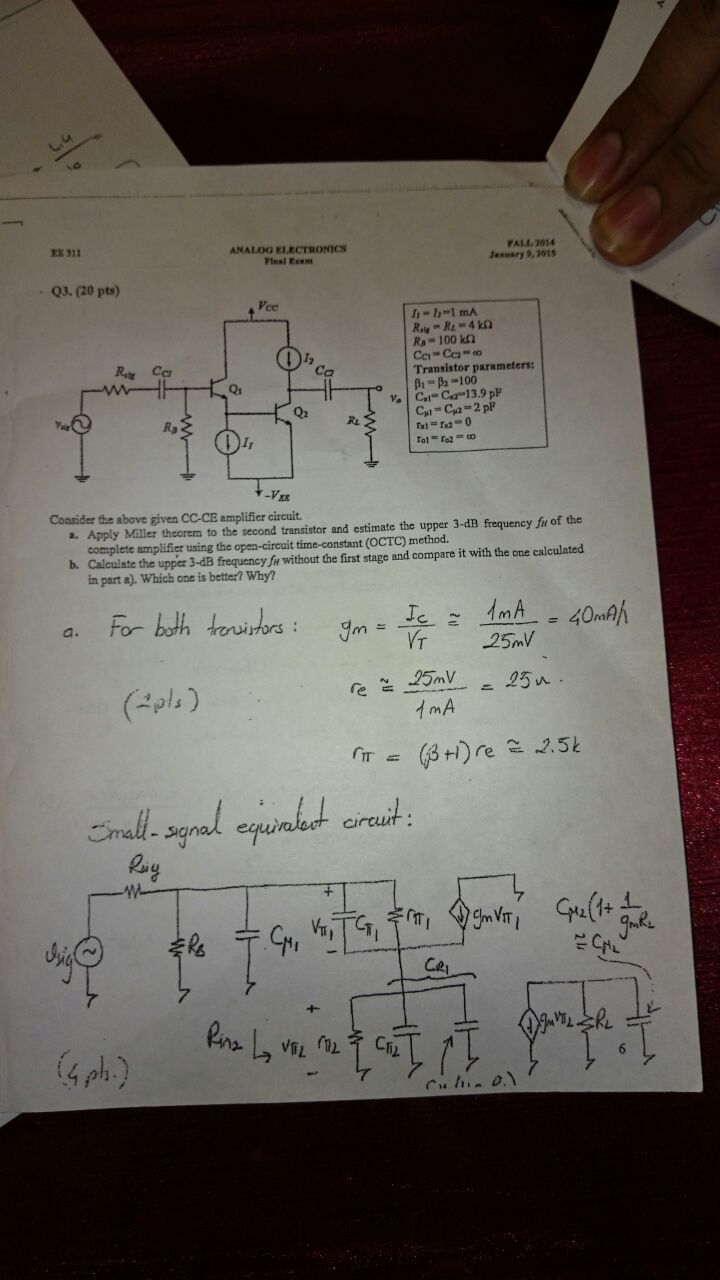 4.4
10
EE 311
ANALOG ELECTRONICS
Final Exam
FALL 2014
January 9, 2015
Q3. (20 pts)
VCC
I2
Rsig CC1
CC2
Q1
Q2
vo
Vsig
RB
I1
RL
-VEE
I1 = I2=1 mA
Rsig = RL = 4 kΩ
RB = 100 kΩ
CC1= CC2= ∞
Transistor parameters:
β1 = β2 =100
Cπ1= Cπ2=13.9 pF
Cμ1 = Cμ2 = 2 pF
rx1 = rx2 = 0
ro1 = ro2 = ∞
Consider the above given CC-CE amplifier circuit.
a. Apply Miller theorem to the second transistor and estimate the upper 3-dB frequency fH of the
complete amplifier using the open-circuit time-constant (OCTC) method.
b. Calculate the upper 3-dB frequency fH without the first stage and compare it with the one calculated
in part a). Which one is better? Why?
a. For both transistors : gm = IC/VT ≅ 1mA/25mV = 40mA/V
(2pts)
re ≅ 25mV/1mA = 25Ω.
rπ = (β+1) re ≅ 2.5k
Small-signal equivalent circuit:
Rsig
+
Vsig
RB
Cμ1
Vπ1
Cπ1
rπ1
gmVπ1
-
Cμ2(1+ 1/gmRL
≅ Cμ2
+
Rin2
Vπ2
rπ2
Cπ2
gmVπ2
RL
-
6
(4 pts.)